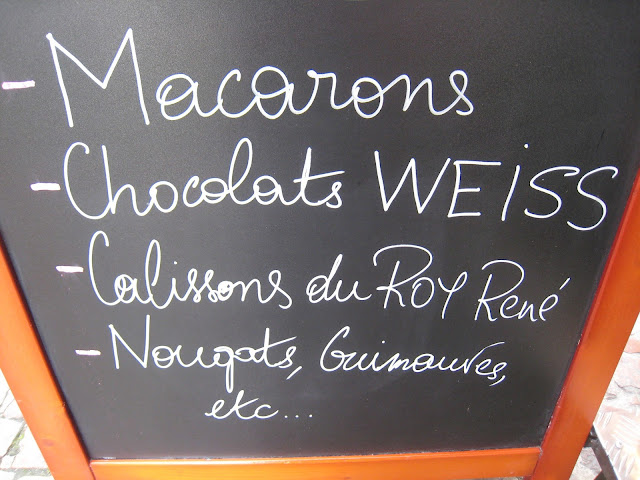 - Macarons
- Chocolats WEiSS
- Calissons du ROY René
- Nougats, Guimauves,
etc...